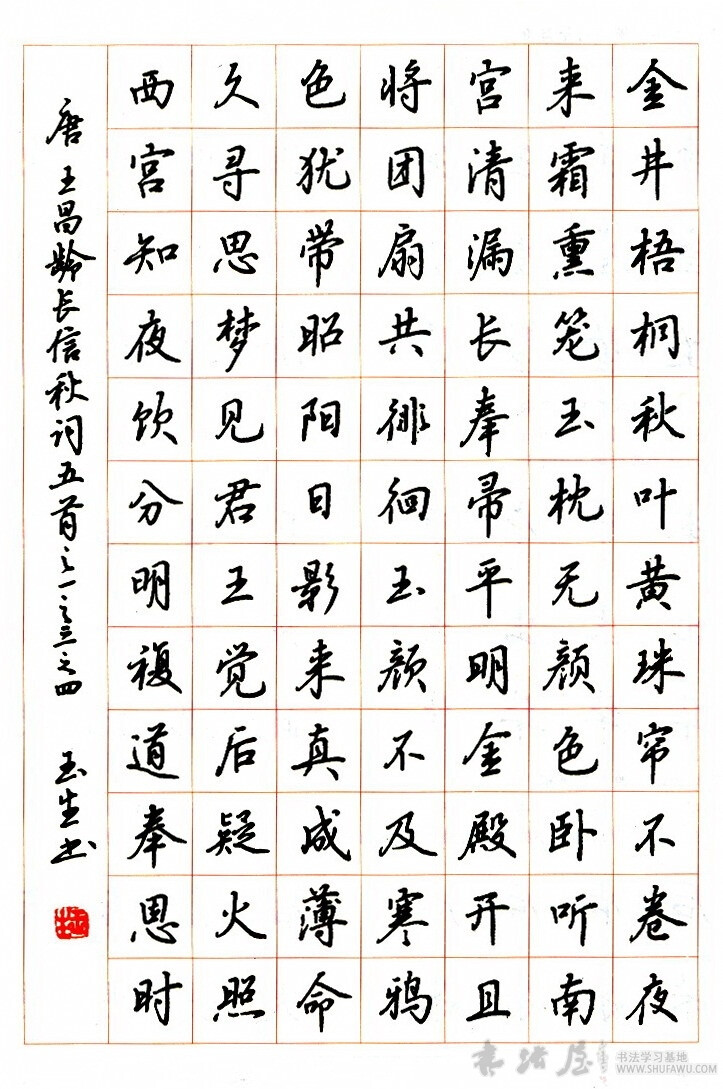 金井梧桐秋叶黄珠帘不卷夜
来霜熏笼玉枕无颜色卧听南
宫清漏长奉帚平明金殿开且
将团扇共徘徊玉颜不及寒鸦
色犹带昭阳日影来真成薄命
久寻思梦见君王觉后疑火照
西宫知夜饮分明複道奉恩时
唐王昌龄长信秋词五首之一之三之四 玉生书
书法学习基地
WWW.SHUFAWU.COM